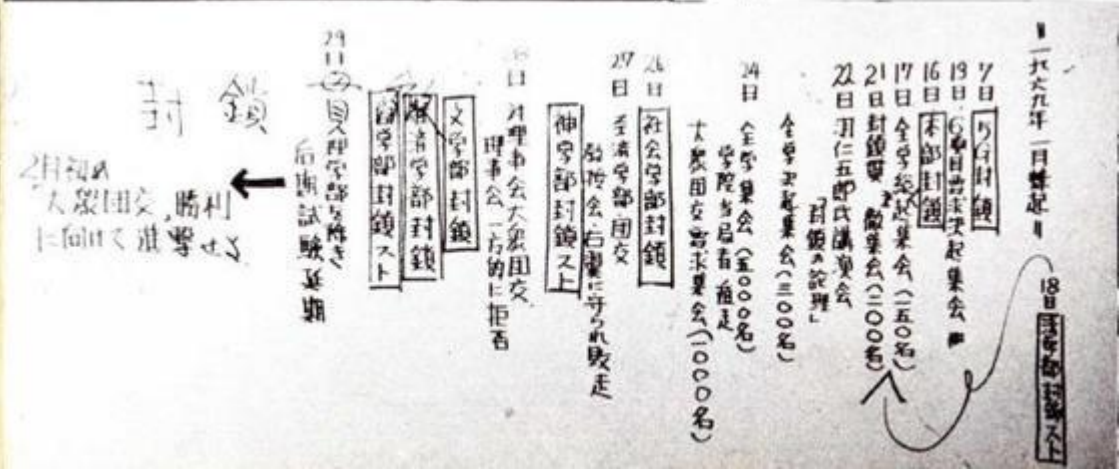 一九六九年一月蜂起
18日 法学部封鎖スト
7日 5号封鎖
19日 6項目要求決起集会
16日 本部封鎖
17日 全学総決起集会(一五〇名)
21日 封鎖貫徹集会(二〇〇名)
22日 羽仁五郎氏講演会
「封鎖の論理」
全学決起集会(三〇〇名)
24日 全学集会(五〇〇名)
学院当局者 追走
大衆団交要求集会(一〇〇〇名)
26日 社会学部封鎖
27日 経済学部団交
教授会、右翼に守られ敗走
神学部封鎖スト
28日 対理事会大衆団交
理事会一方的に拒否
文学部封鎖
経済学部封鎖
商学部封鎖スト
29日 理学部を除き
后期試験延期
封鎖
2月初め
「大衆団交」勝利
に向けて進撃せよ